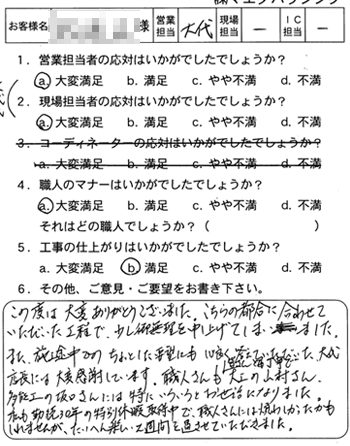 お客様名 様 営業担当 大代 現場担当 ー IC担当 ー
1．営業担当者の応対はいかがでしたでしょうか？
a. 大変満足 b. 満足 c. やや不満 d. 不満
2．現場担当者の応対はいかがでしたでしょうか？
a. 大変満足 b. 満足 c. やや不満 d. 不満
3．コーディネーターの応対はいかがでしたでしょうか？
a. 大変満足 b. 満足 c. やや不満 d. 不満
4．職人のマナーはいかがでしたでしょうか？
a. 大変満足 b. 満足 c. やや不満 d. 不満
それはどの職人でしょうか？（ ）
5．工事の仕上がりはいかがでしたでしょうか？
a. 大変満足 b. 満足 c. やや不満 d. 不満
6．その他、ご意見・ご要望をお書き下さい。
この度は大変ありがとうございました。こちらの都合に合わせて
いただいた工程で、少し御無理を申し上げてしまいました。
また、施工途中でのちょっとした要望にも心良く 大代
店長には大変感謝しています。職人さんも 大工の山村さん、
の坂口さんには特にいろいろとお世話になりました。
私も勤続30年の特別休暇取得中で、職人さんには煩わしかったかも
しれませんが、たいへん楽しい2週間を過させていただきました。